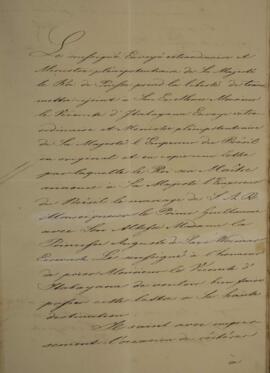 Le soussigné Envoyé extraordinaire et
Ministre plénipotentiaire de Sa Majesté
le Roi de Prusse prend la liberté de trans
mettre à Son Excellence Monsieur
le Vicomte d'Itabayana Envoyé extra-
ordinaire et Ministre plénipotentiaire
de Sa Majesté l'Empereur du Brésil
en original et en copie une lettre
par laquelle le Roi son Maître
annonce à Sa Majesté l'Empereur
du Brésil le mariage de S. A. R.
Monseigneur le Prince Guillaume
avec Son Altesse Madame la
Princesse Auguste de Saxe Weimar
Le soussigné a l'honneur
de prier Monsieur le Vicomte d'
Itabayana de vouloir bien faire
passer cette lettre à Sa haute
destination.
Il saisit avec empres
sement l'occasion de réitérer
à